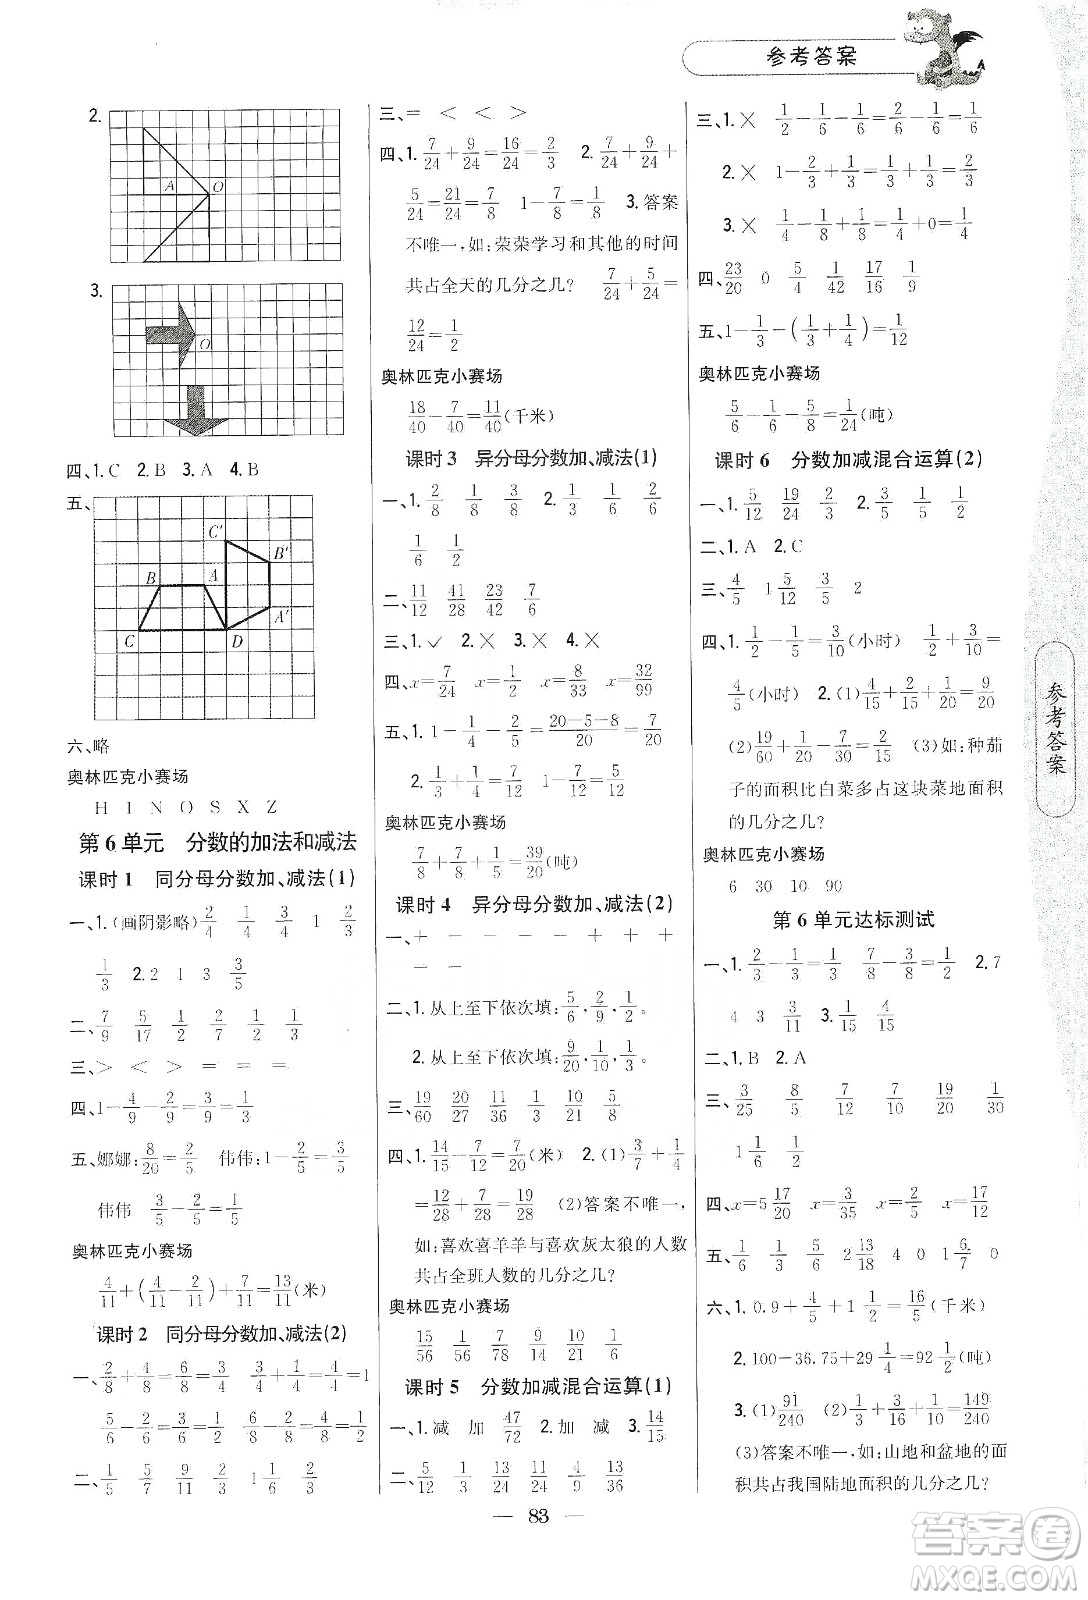 参考答案
2.
A O
3.
O
四、1. C 2. B 3. A 4. B
五、
C′ B′ B A A′ C D
六、略
奥林匹克小赛场
H I N O S X Z
第 6 单元 分数的加法和减法
课时 1 同分母分数加、减法(1)
一、1.(画阴影略) 2/4 1/4 3/4 1/3
1/3 2. 2 1 3 3/5
二、7/9 5/17 1/2 2/7 1/2 1/3
三、> < > = = =
四、1-4/9-2/9=3/9=1/3
五、娜娜:8/20=2/5 伟伟:1-2/5=3/5
伟伟 3/5-2/5=1/5
奥林匹克小赛场
4/11+(4/11-2/11)+7/11=13/11(米)
课时 2 同分母分数加、减法(2)
一、2/8+4/8=6/8=3/4 3/4+1/4=4/4=1
5/6-1/6=4/6=2/3
二、
三、= < < >
四、1. 7/24+9/24=16/24=2/3 2. 7/24+9/24+
5/24=21/24=7/8 1-7/8=1/8 3. 答案
不唯一,如:荣荣学习和其他的时间
共占全天的几分之几? 7/24+5/24=
12/24=1/2
奥林匹克小赛场
18/40-7/40=11/40(千米)
课时 3 异分母分数加、减法(1)
一、1. 2/8 1/8 3/8 2. 1/3 1/2 2/6
1/6 1/2
二、11/12 41/28 23/42 7/6
三、1. ✓ 2. × 3. × 4. ×
四、x=7/24 x=1/2 x=8/33 x=32/99
五、1. 1-1/4-2/5=(20-5-8)/20=7/20
2. 1/3+1/4=7/12 1-7/12=5/12
奥林匹克小赛场
7/8+7/8+1/5=39/20(吨)
课时 4 异分母分数加、减法(2)
一、+ - - - + + +
- -
二、1. 从上至下依次填:5/6,2/9,1/2。
2. 从上至下依次填:9/20,1/20,1/5。
三、19/60 20/27 11/36 1/3 10/21 5/8
四、1. 14/15-7/12=7/20(米) 2.(1)3/7+1/4
=12/28+7/28=19/28 (2)答案不唯一,
如:喜欢喜羊羊与喜欢灰太狼的人数
共占全班人数的几分之几?
奥林匹克小赛场
15/56 1/56 7/90 9/20 1/20 13/36
课时 5 分数加减混合运算(1)
一、1. 减 加 47/72 2. 加 减 3. 14/15
二、5/12 7/24 13/24 4/9 13/36 1/24
三、1. × 1/2-1/6-1/6=2/6-1/6=1/6
2. × 1-1/3+1/3=1/3+1/3=2/3
3. × 1/4-1/4+1/8+1/8=1/4
四、23/20 0 5/4 1/42 17/16 8/9
五、1-1/3-(1/3+1/4)=1/12
奥林匹克小赛场
5/6-1/6-5/8=1/24(吨)
课时 6 分数加减混合运算(2)
一、1. 5/12 19/24 2. 3/5 1/5 9/10
二、1. A 2. C
三、4/5 1 5/12 3/5 2
四、1. 1/2-1/5=3/10(小时) 1/2+3/10=
4/5(小时) 2.(1)4/15+2/15+1/20=9/20
(2)19/60+1/2=49/60 (3)如:种茄
子的面积比白菜多占这块菜地面积
的几分之几?
奥林匹克小赛场
6 30 10 90
第 6 单元达标测试
一、1. 2/3-1/3=1/3 7/8-3/8=1/2 2. 7
4 3 3/11 3. 1/15 4/15
二、1. B 2. A
三、3/25 8/5 7/12 19/35 2/9 1/30
1 1/6 1/2
四、x=5 17/20 x=3/35 x=2/5 x=17/12
五、1/6 13/12 2 3/5 4 0 1 9/13 0
六、1. 0.9+4/5+1 1/2=16/5(千米)
2. 100-36.75+29 1/4=92 1/2(吨)
3.(1)91/240 (2)1/3+3/16+1/10=149/240
(3)答案不唯一,如:山地和盆地的面
积共占我国陆地面积的几分之几?
参考答案
— 83 —
答案卷
MXQE.COM